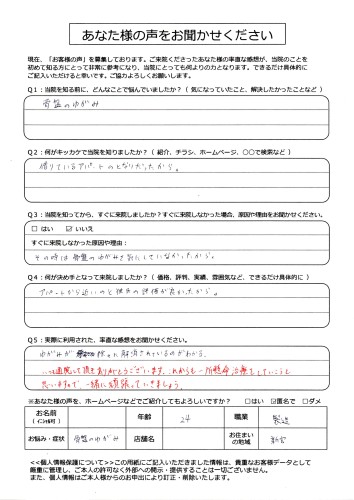 あなた様の声をお聞かせください
現在、「お客様の声」を募集しております。ご来院くださったあなた様の率直な感想が、当院のことを
初めて知る方にとって非常に参考になり、当院にとっても何よりの力となります。できるだけ具体的に
ご記入いただけると幸いです。ご協力よろしくお願いします。
Q1:当院を知る前に、どんなことで悩んでいましたか?( 気になっていたこと、解決したかったことなど )
骨盤のゆがみ
Q2:何がキッカケで当院を知りましたか?( 紹介、チラシ、ホームページ、〇〇で検索など )
借りているアパートのとなりだったから。
Q3:当院を知ってから、すぐに来院しましたか?すぐに来院しなかった場合、原因や理由をお聞かせください。
□ はい ☑ いいえ
すぐに来院しなかった原因や理由:
その時は骨盤のゆがみを気にしていなかったから。
Q4:何が決め手となって来院しましたか?( 価格、評判、実績、雰囲気など、できるだけ具体的に )
アパートから近いのと彼氏の評価が良かったから。
Q5:実際に利用された、率直な感想をお聞かせください。
ゆがみが 解消されているのがわかる。
頂きありがとうございます。これからも一所懸命治療をしていこうと
思いますので、一緒に頑張っていきましょう。
※あなた様の声を、ホームページなどでご紹介してもよろしいですか? □はい ☑匿名で □ダメ
お名前
(イニシャル可)
年齢
24
職業
製造
お悩み・症状
骨盤のゆがみ
店舗名
お住まい
の地域
<<個人情報保護について>>この用紙にご記入いただきました情報は、貴重なお客様データとして
厳重に管理し、ご本人の許可なく外部への開示・提供することは一切ございません。
また、個人情報はご本人様からのお申出により訂正・削除いたします。